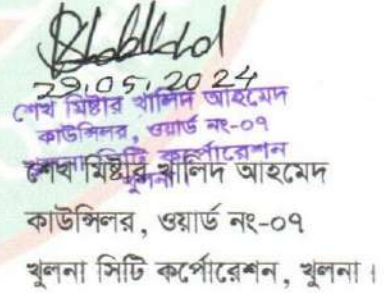 29.05.2024
শেখ মিষ্টার খালিদ আহমেদ
কাউন্সিলর, ওয়ার্ড নং-০৭
খুলনা সিটি কর্পোরেশন
খুলনা।
শেখ মিষ্টার খালিদ আহমেদ
কাউন্সিলর, ওয়ার্ড নং-০৭
খুলনা সিটি কর্পোরেশন, খুলনা।